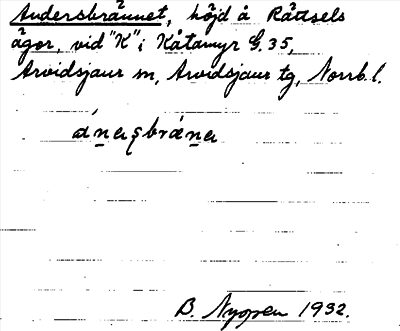 Andersbrännet, höjd å Rättsels
ägor, vid "K" i Kåtamyr G. 35,
Arvidsjaur sn, Arvidsjaur tg, Norrb. l.
ánerşbrǽner
B. Nyppen 1932.